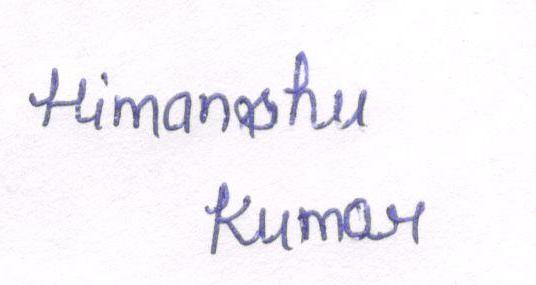 Himanshu
Kumar